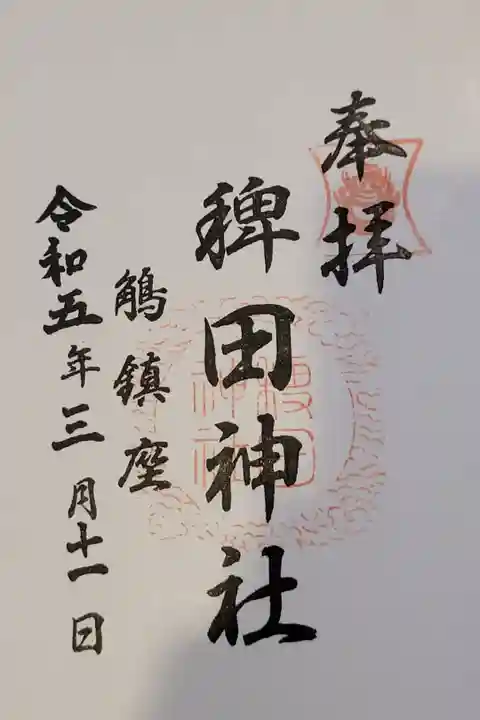 奉拝
稗田神社
鵤鎮座
令和五年三月十一日
稗田神社